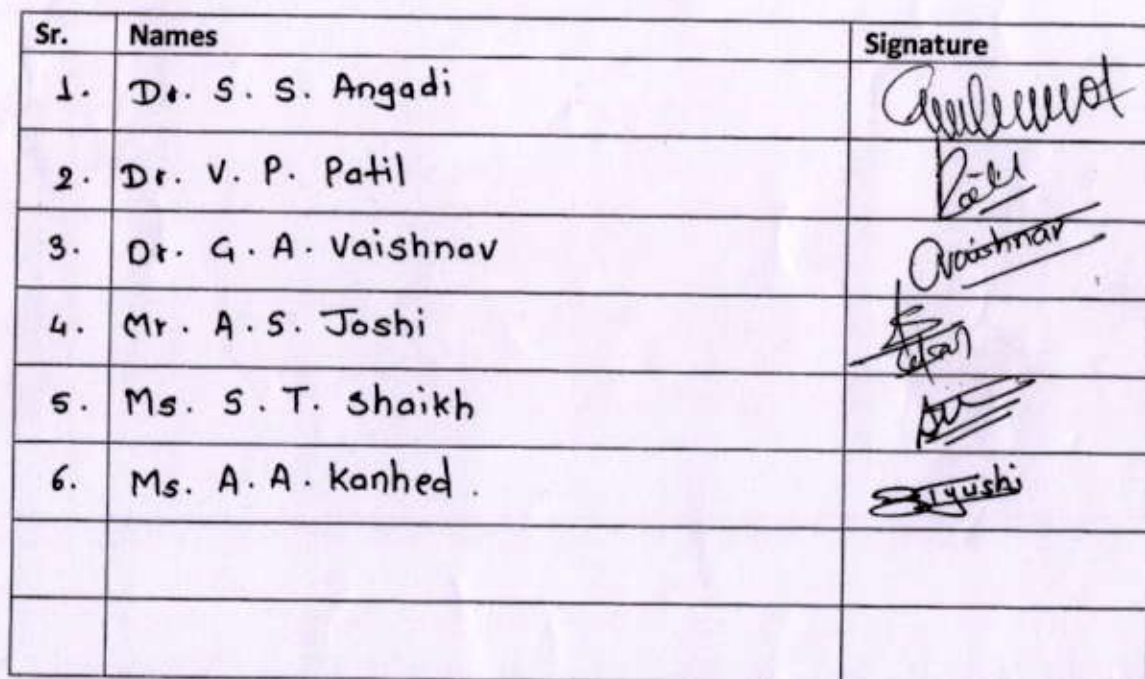 Sr. Names Signature
1. Dr. S. S. Angadi
2. Dr. V. P. Patil Patil
3. Dr. G. A. Vaishnav Gvaishnav
4. Mr. A. S. Joshi
5. Ms. S. T. Shaikh
6. Ms. A. A. Kanhed.